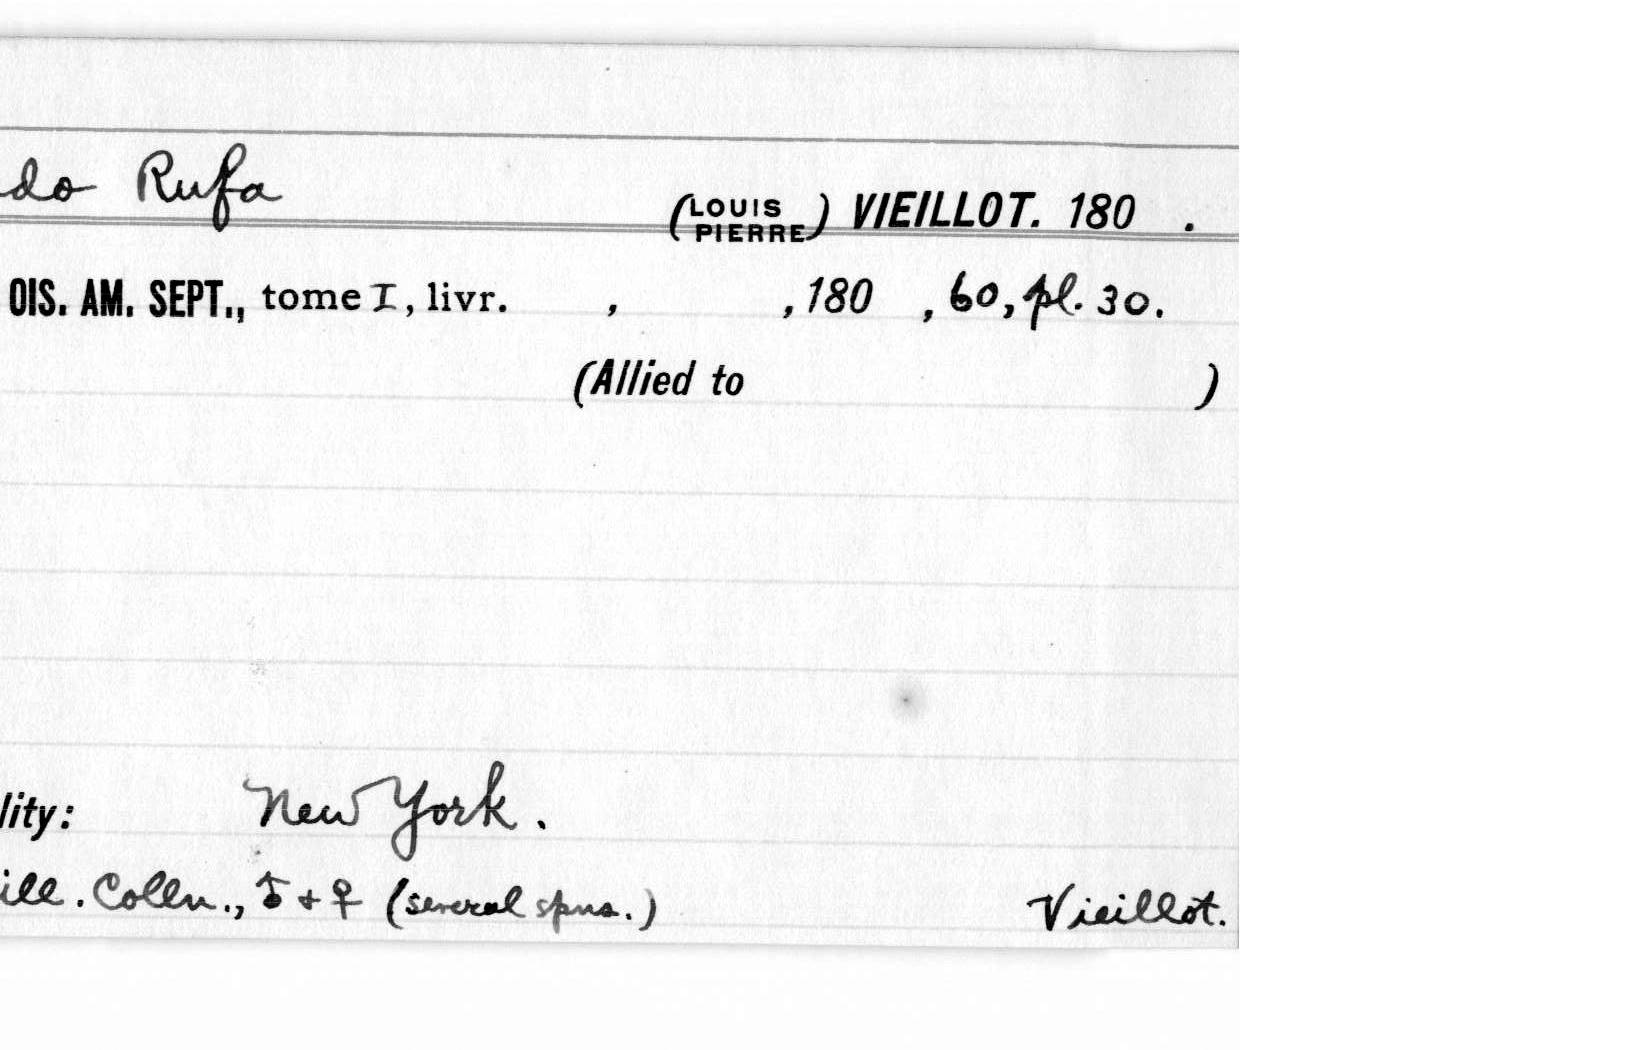 do Rufa
(LOUIS PIERRE) VIEILLOT. 180 .
OIS. AM. SEPT., tome I, livr. , , 180 , 60, pl. 30.
(Allied to )
lity: New York.
ill. Colln., ♂ + ♀ (several spns.) Vieillot.